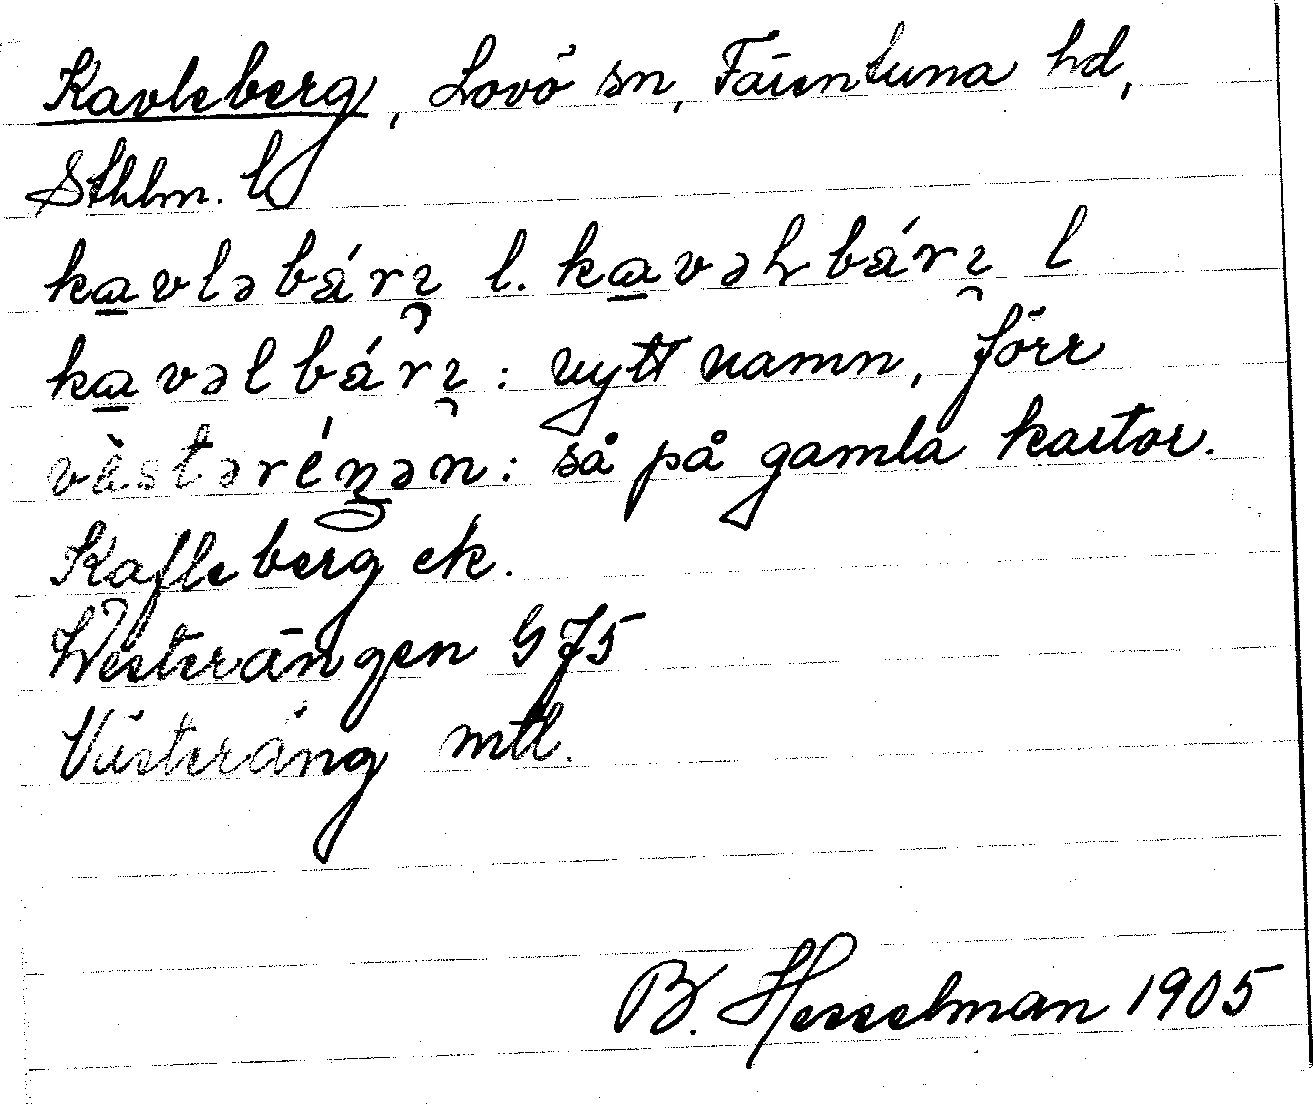 Kavleberg, Lovö sn, Färentuna hd,
Sthlm. l
kavləbárɪ l. kavəlbárɪ l
kavəlbárɪ : nytt namn, förr
västəréŋən : så på gamla kartor.
Kafleberg ek.
Westerängen GJ5
Västeräng mtl.
B. Hesselman 1905